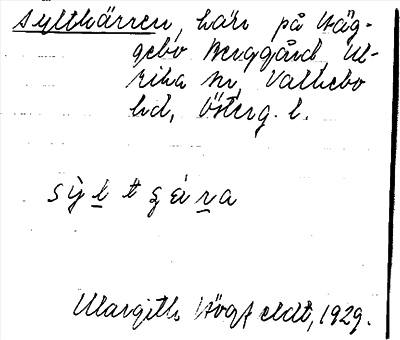 Syltkärren, kärr på Häg-
gebo Berggård, Ul-
rika sn, Valkebo
hd, Österg. l.
sỳltʂára
Margith Högfeldt, 1929.